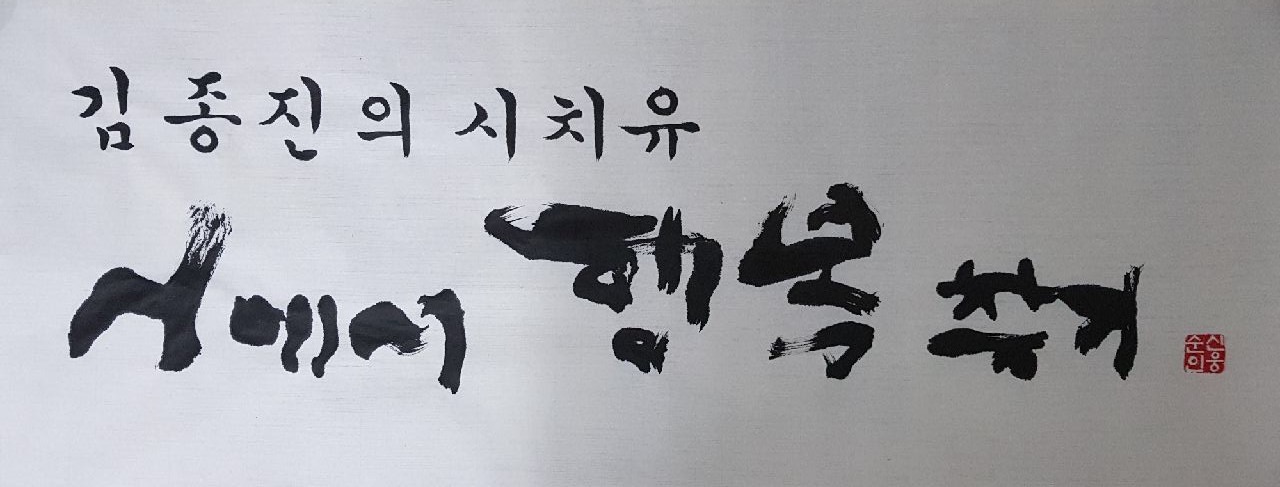 김종진의 시치유
시에서 행복 찾기
신웅
순인